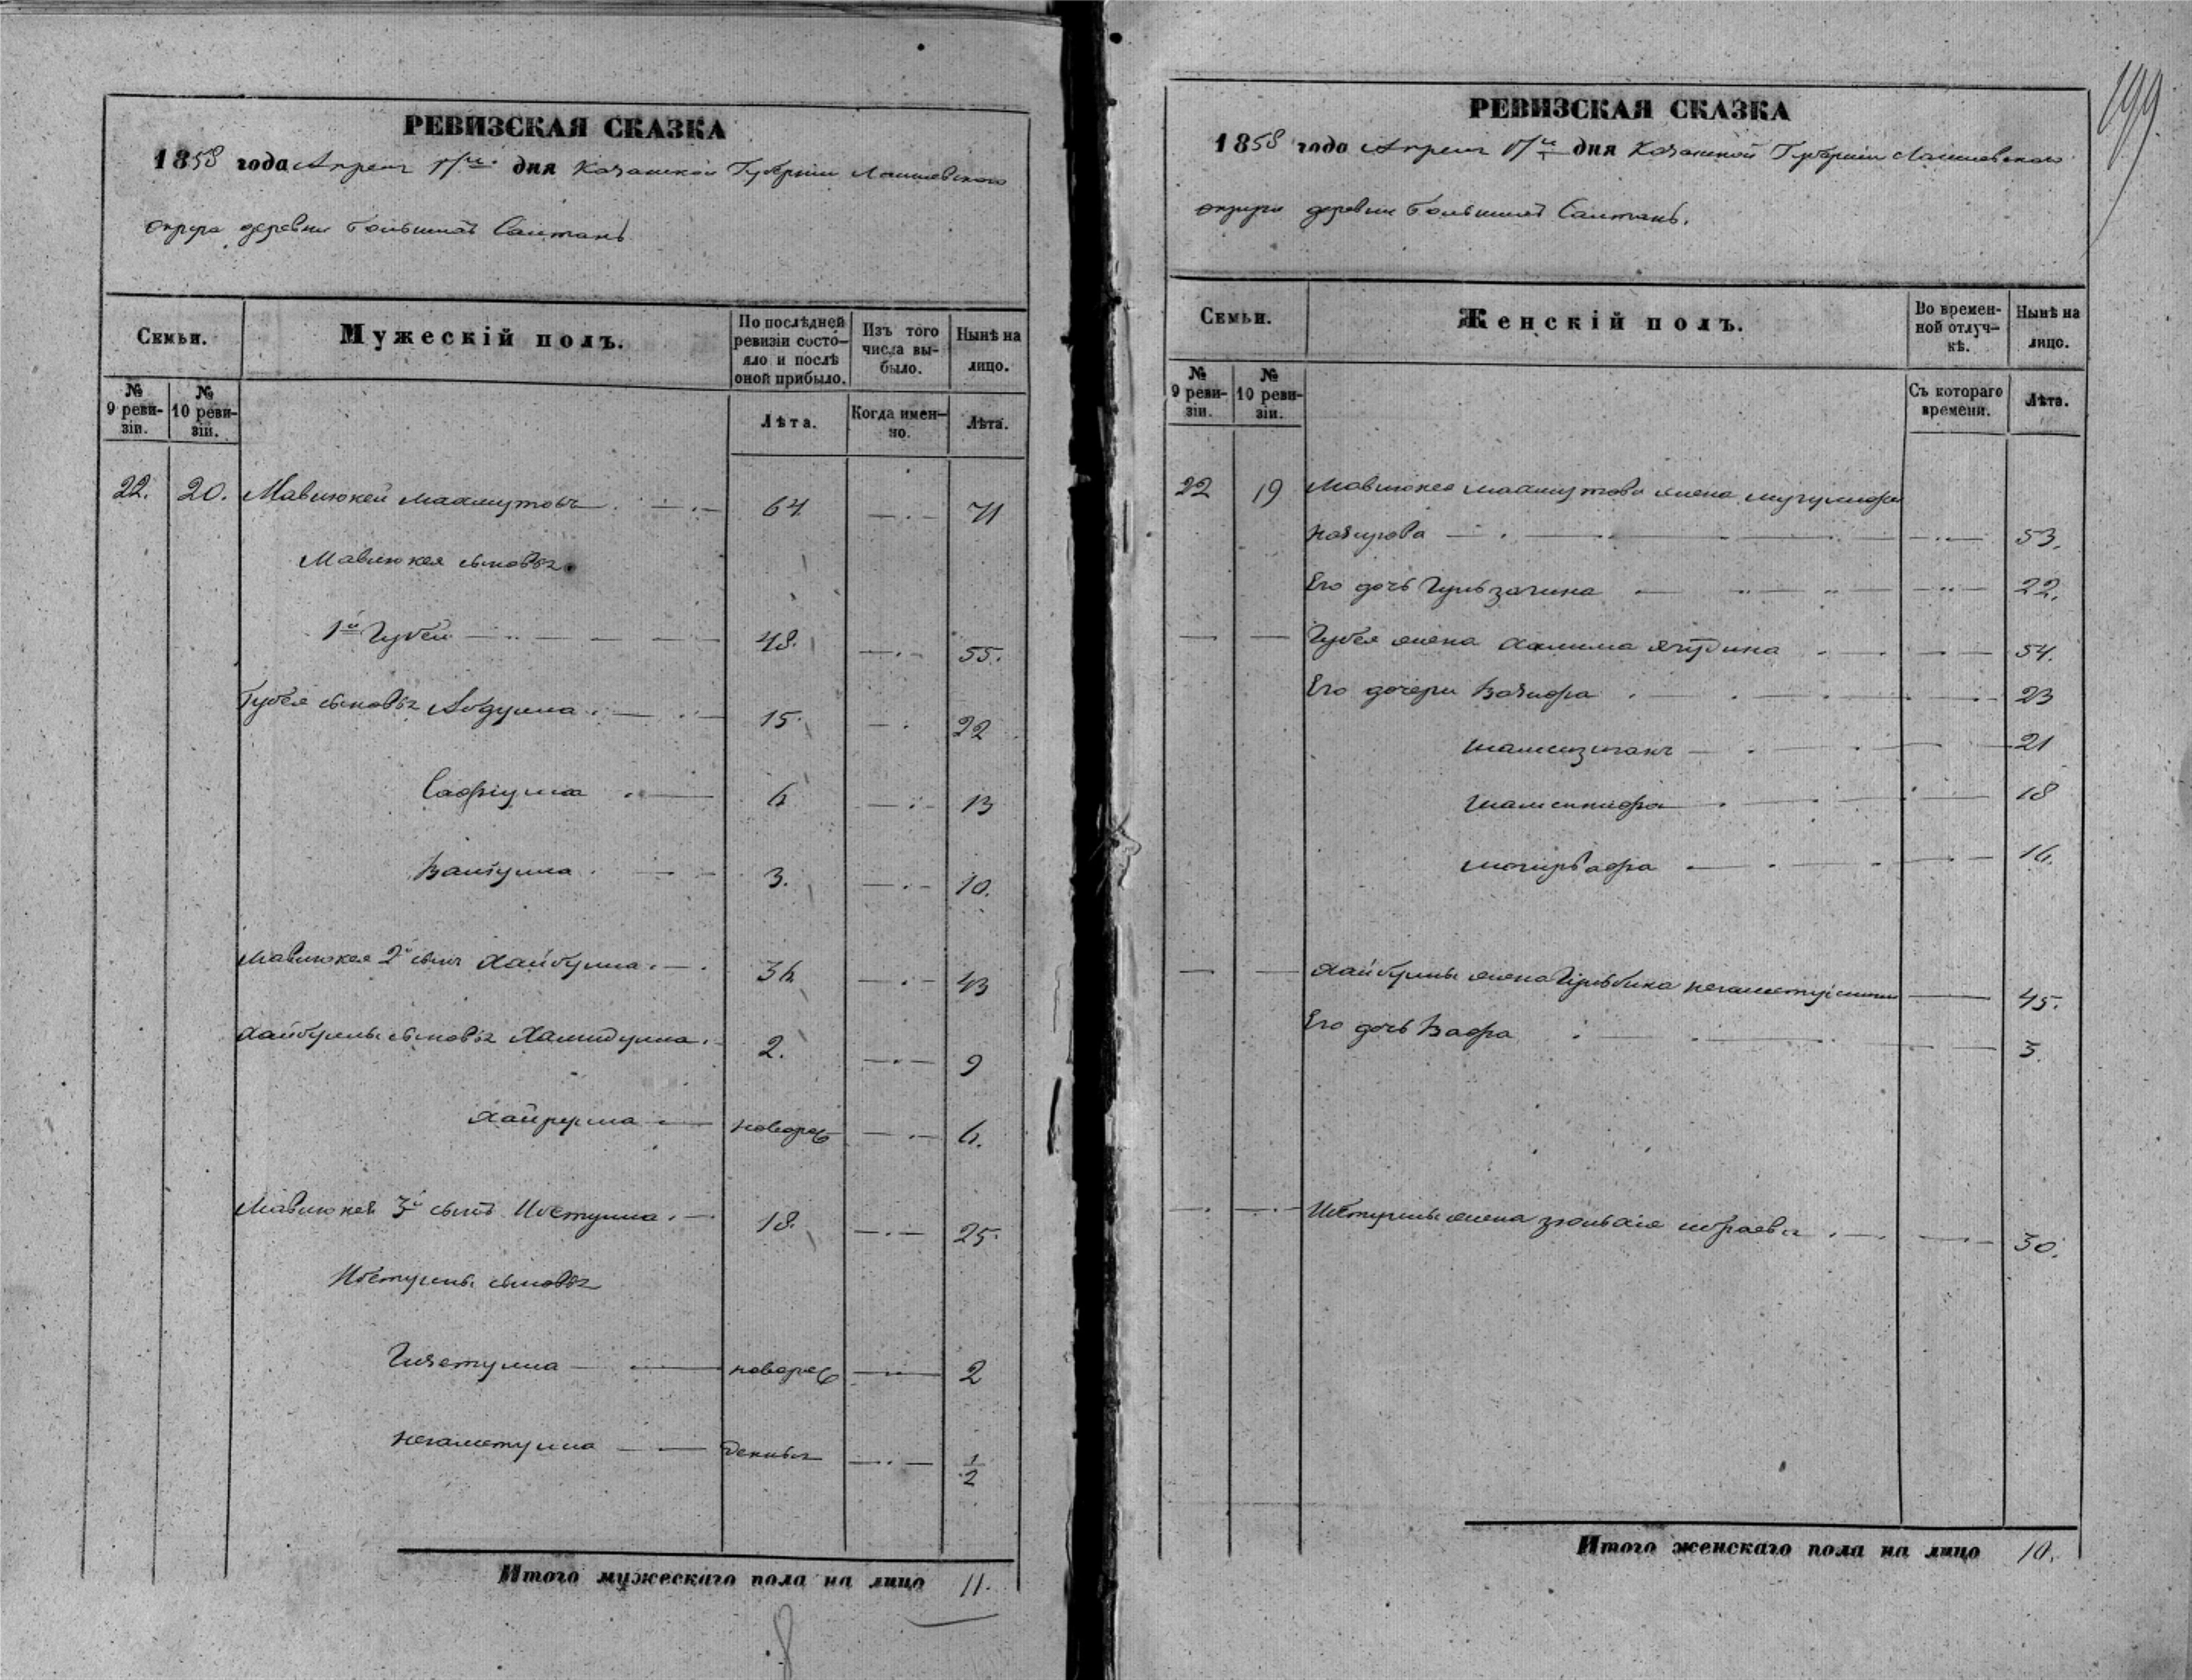 199
РЕВИЗСКАЯ СКАЗКА
1858 года Апреля дня Казанской Губернии Лаишевского
округа деревни большихъ Салтанъ
Семьи.
Мужескій полъ.
По послѣдней ревизіи состо-
яло и послѣ оной прибыло.
Изъ того числа вы-
было.
Нынѣ на лицо.
№ 9 реви-
зіи.
№ 10 реви-
зіи.
Лѣта.
Когда имен-
но.
Лѣта.
22. 20. Мавлюкей Махмутовъ 64 71
Мавлюкея сыновья
1й Губей 48. 55.
Губея сыновья Абдулла 15. 22
Сафіулла 6 13
Валиулла 3. 10.
Мавлюкея 2й сынъ Хайбулла 36 43
Хайбуллы сыновья Хамидулла 2. 9
Хайрулла новорож 6.
Мавлюкея 3й сынъ Ибетулла 18. 25.
Ибетуллы сыновья
Гизетулла новорож 2
Негаметулла 1/2
Итого мужескаго пола на лицо 11.
РЕВИЗСКАЯ СКАЗКА
1858 года Апреля дня Казанской Губернии Лаишевского
округа деревни большихъ Салтанъ.
Семьи.
Женскій полъ.
Во времен-
ной отлуч-
кѣ.
Нынѣ на лицо.
№ 9 реви-
зіи.
№ 10 реви-
зіи.
Съ котораго времени.
Лѣта.
22 19 Мавлюкея Махмутова жена
53.
Его дочь Гульзамина 22.
Губея жена Халима 54.
Его дочери Вазифа 23
21
18
16.
Хайбуллы жена Гульбика 45.
Его дочь Вафа 5.
Ибетуллы жена 30.
Итого женскаго пола на лицо 10.